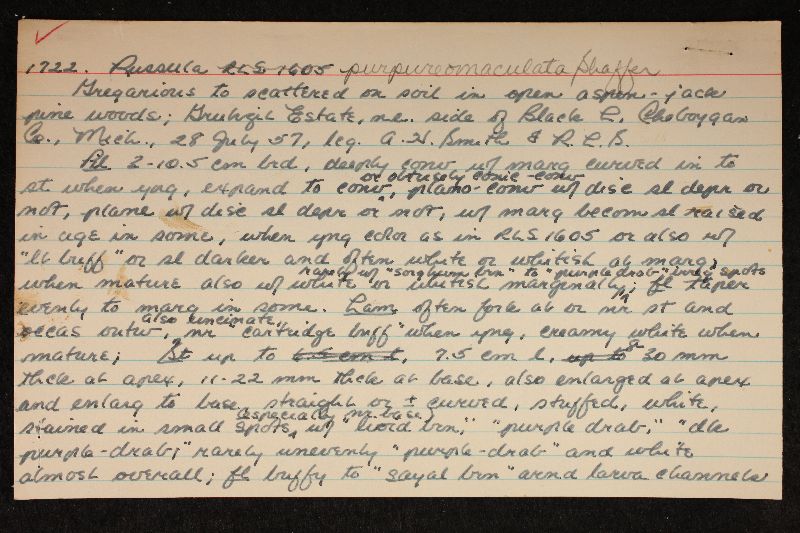 1722. Russula RLS 1605 purpureomaculata Shaffer
Gregarious to scattered on soil in open aspen-jack
pine woods; Grubigh Estate, n.e. side of Black L., Cheboygan
Co., Mich., 28 July 57, leg. A.H. Smith & R.L.S.
Pil 3-10.5 cm brd, deeply conv w/ marg curved in to
st when yng, expand to conv, or obtusely conic-conv plano-conv w/ disc sl depr or
not, plane w/ disc sl depr or not, w/ marg becom sl raised
in age in some, when yng color as in RLS 1605 or also w/
"lt buff" or sl darker and often white or whitish at marg,
when mature also w/ white or whitish marginally, rarely w/ "sorghum brn" to "purple drab" spots; fl taper
evenly to marg in some. Lam often fork at or nr st and
occas outw, also uncinate, nr "cartridge buff" when yng, creamy white when
mature; St up to 6.5 cm l, 7.5 cm l, up to 8-30 mm
thck at apex, 11-22 mm thck at base, also enlarged at apex
and enlarg to base, straight or ± curved, stuffed, white,
stained in small spots (especially nr base), w/ "livid brn," "purple drab," "dk
purple-drab;" rarely unevenly "purple-drab" and white
almost overall; fl buffy to "sayal brn" arnd larva channels